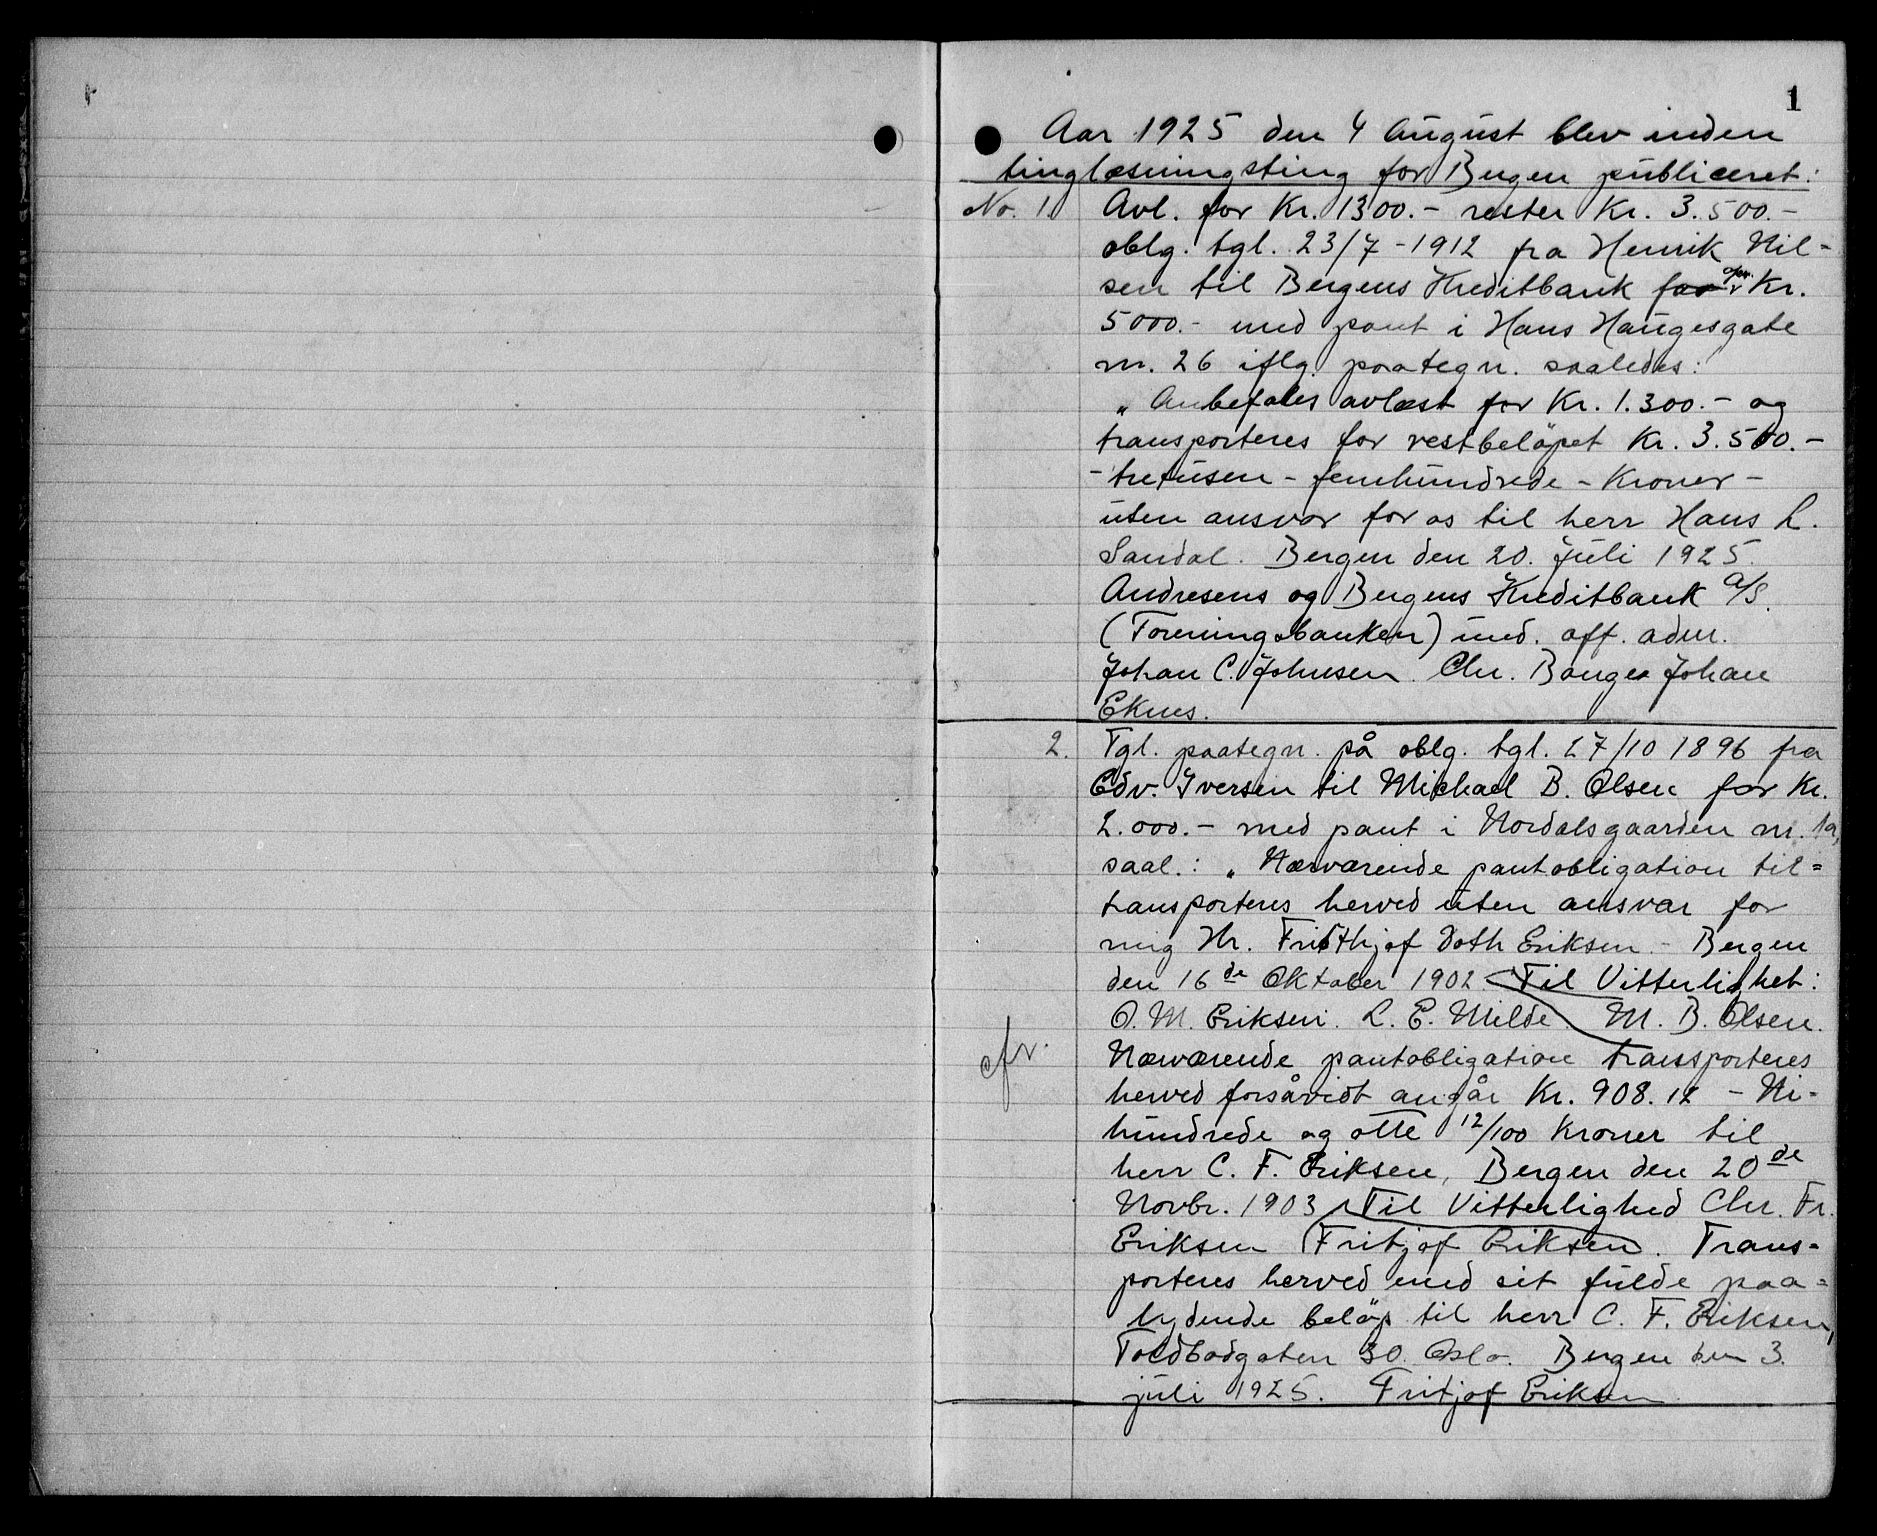 1
Aar 1925 den 4 August blev inden
tinglæsningsting for Bergen publiceret:
No. 1. Avl. for Kr. 1300.- rester Kr. 3.500.-
oblg. tgl. 23/7-1912 fra Henrik Nil-
sen til Bergens Kreditbank for Kr.
5000.- med pant i Hans Haugesgate
nr. 26 iflg. paategn. saaledes:
"Anbefales avlæst for Kr. 1.300.- og
transporteres for restbeløpet Kr. 3.500.-
-tretusen-femhundrede-Kroner-
uten ansvar for os til herr Hans L.
Sandal. Bergen den 20. Juli 1925.
Andresens og Bergens Kreditbank A/S.
(Foreningsbanken) und. off. adm.
Johan C. Johnsen. Chr. Bange Johan
Eknes.
2. Tgl. paategn. på oblg. tgl. 27/10 1896 fra
Edv. Iversen til Michael B. Olsen for Kr.
2.000.- med pant i Nordalsgaarden nr. 1a,
saal.: "Nærværende pantobligation til=
transporteres herved uten ansvar for
mig Hr. Fridthjof Voth Eriksen - Bergen
den 16de Oktober 1902 Til Vitterlighet:
O. M. Eriksen. L. E. Milde. M. B. Olsen.
cfr. Nærværende pantobligation transporteres
herved forsåvidt angår Kr. 908.12 - Ni-
hundrede og otte 12/100 Kroner til
herr C. F. Eriksen, Bergen den 20de
Novbr. 1903 Til Vitterlighed Chr. Fr.
Eriksen Fritjof Eriksen. Trans-
porteres herved med sit fulde paa=
lydende beløp til herr C. F. Eriksen,
Toldbodgaten 30. Oslo. Bergen den 3.
juli 1925. Fritjof Eriksen.